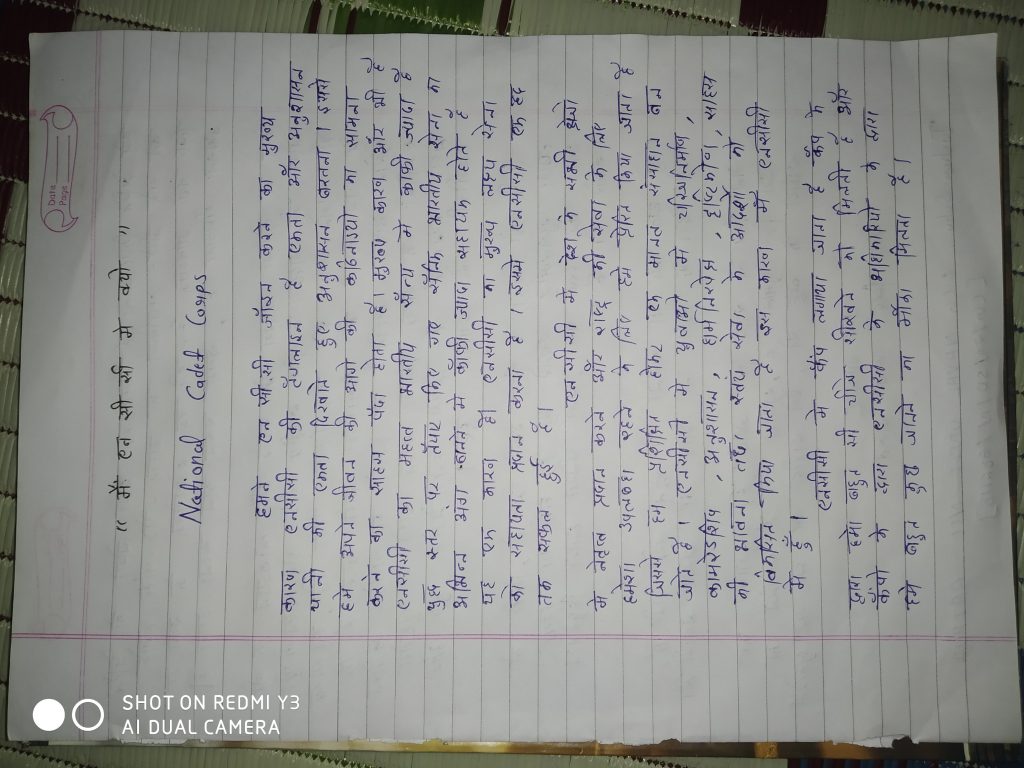 Date
Page
" मैं एन सी सी में क्यों "
National Cadet Corps
हमने एन सी सी जॉइन करने का मुख्य
कारण एनसीसी की टैगलाइन है एकता और अनुशासन
यानी की एकता दिखाते हुए अनुशासन बरतना । इससे
हमे अपने जीवन की आगे की कठिनाइयों का सामना
करने का साहस पैदा होता है। मुख्य कारण और भी है
एनसीसी का महत्व भारतीय सेना में काफी ज्यादा है
युद्ध स्तर पर तैयार किए गए सैनिक भारतीय सेना का
अभिन्न अंग बनने में काफी ज्यादा सहायक होते हैं
यह एक मानव है। एनसीसी का मुख्य लक्ष्य सेना
को सहायता प्रदान करना है । इसमें एनसीसी एक हद
तक सफल हुई है।
एनसीसी में देश के सभी क्षेत्रो
में नेतृत्व प्रदान करने और राष्ट्र की सेवा के लिए
हमेशा उपलब्ध रहने के लिए हमे प्रेरित किया जाता है
जिससे हम प्रशिक्षित होकर एक मानव संसाधन बन
जाते है । एनसीसी में युवाओं में चरित्रनिर्माण,
कामरेडशिप, अनुशासन, धर्मनिरपेक्ष, दृष्टिकोण, साहस
की भावना तथा स्वयं सेवा के आदर्शों को
विकसित किया जाता है इस कारण मैं एनसीसी
में हूँ।
एनसीसी में कैंप लगाया जाता है कैंप के
द्वारा हमें बहुत सी चीज सीखने को मिलती है और
कैंपों के द्वारा एनसीसी के प्रतिभागियों के साथ
हमे बहुत कुछ जानने का मौका मिलता है।
SHOT ON REDMI Y3
AI DUAL CAMERA